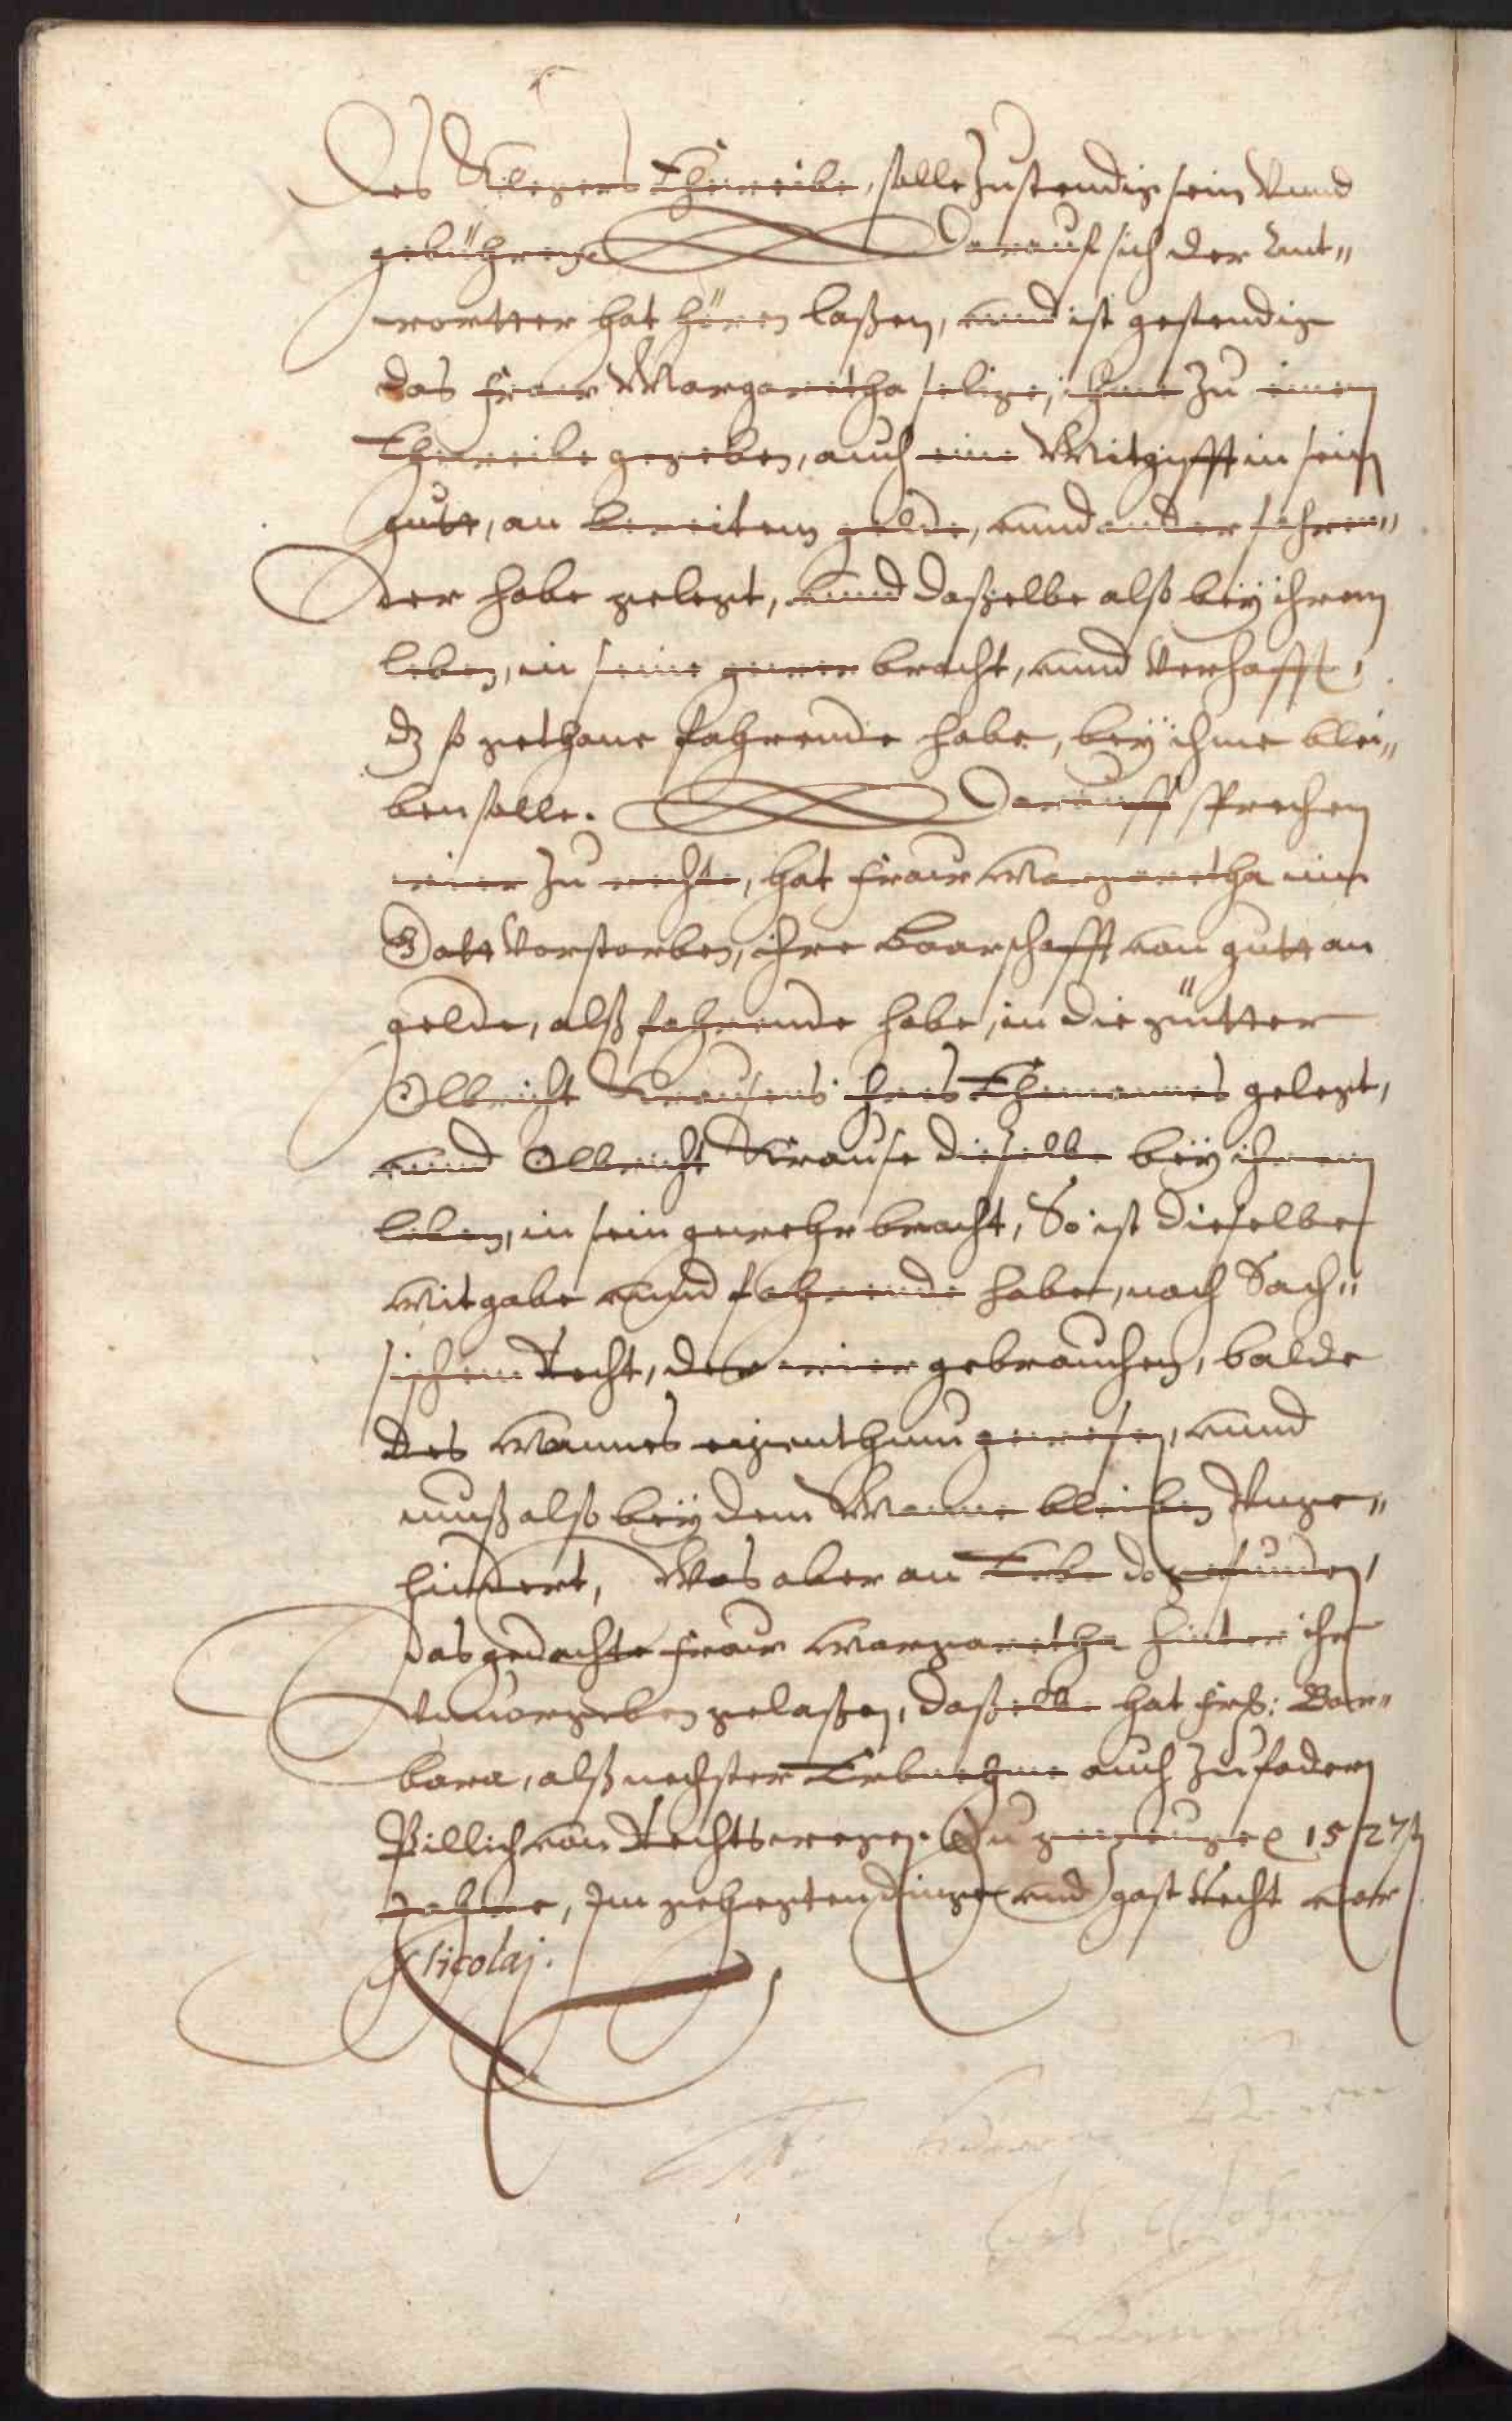 Des Klegers Eheweibe, solle zustendig sein Vnnd
gebühren. Darauf sich der Ant„
wortter hat hören laßen, vnnd ist gestendig
das fraw Margaretha selige, ihme zu einem
Eheweibe gegeben, auch eine Mitgifft in sein
gutt, an bereitem gelde, vnnd ander fahren„
der habe gelegt, vnnd daßelbe alß beÿ ihrem
leben, in seine gewer bracht, vnnd Verhofft,
dz so gethane fahrende habe, beÿ ihme blei„
ben solle. Darauff sprechen
wier zu rechte, hat fraw Margaretha inn
Gott Vorstorben, ihre Baarschafft von gutt an
gelde, alß fahrende habe, in die gütter
Olbricht Krausens ihres Ehemannes gelegt,
vnnd Olbricht Krause dieselbe beÿ ihrem
leben, in sein gewehr bracht, So ist dieselbe
mitgabe vnnd fahrende habe, nach Sach„
sischem Recht, des wier gebrauchen, balde
des Mannes eigenthum gewesen, vnnd
muß alß beÿ dem Manne bleiben Vnge„
hindert, Was aber an Erbe do gefunden,
das gedachte fraw Margaretha hinter ihr
Vnuorgeben gelaßen, daßelbe hat Fr: Bar„
bara, alß nechster Erbnehme auch zu fodern
Billich von Rechts wegen. Zu gezeuge 1527
Jahre, Im gehegten dinge vnd gast Recht vor
Nicolaj.